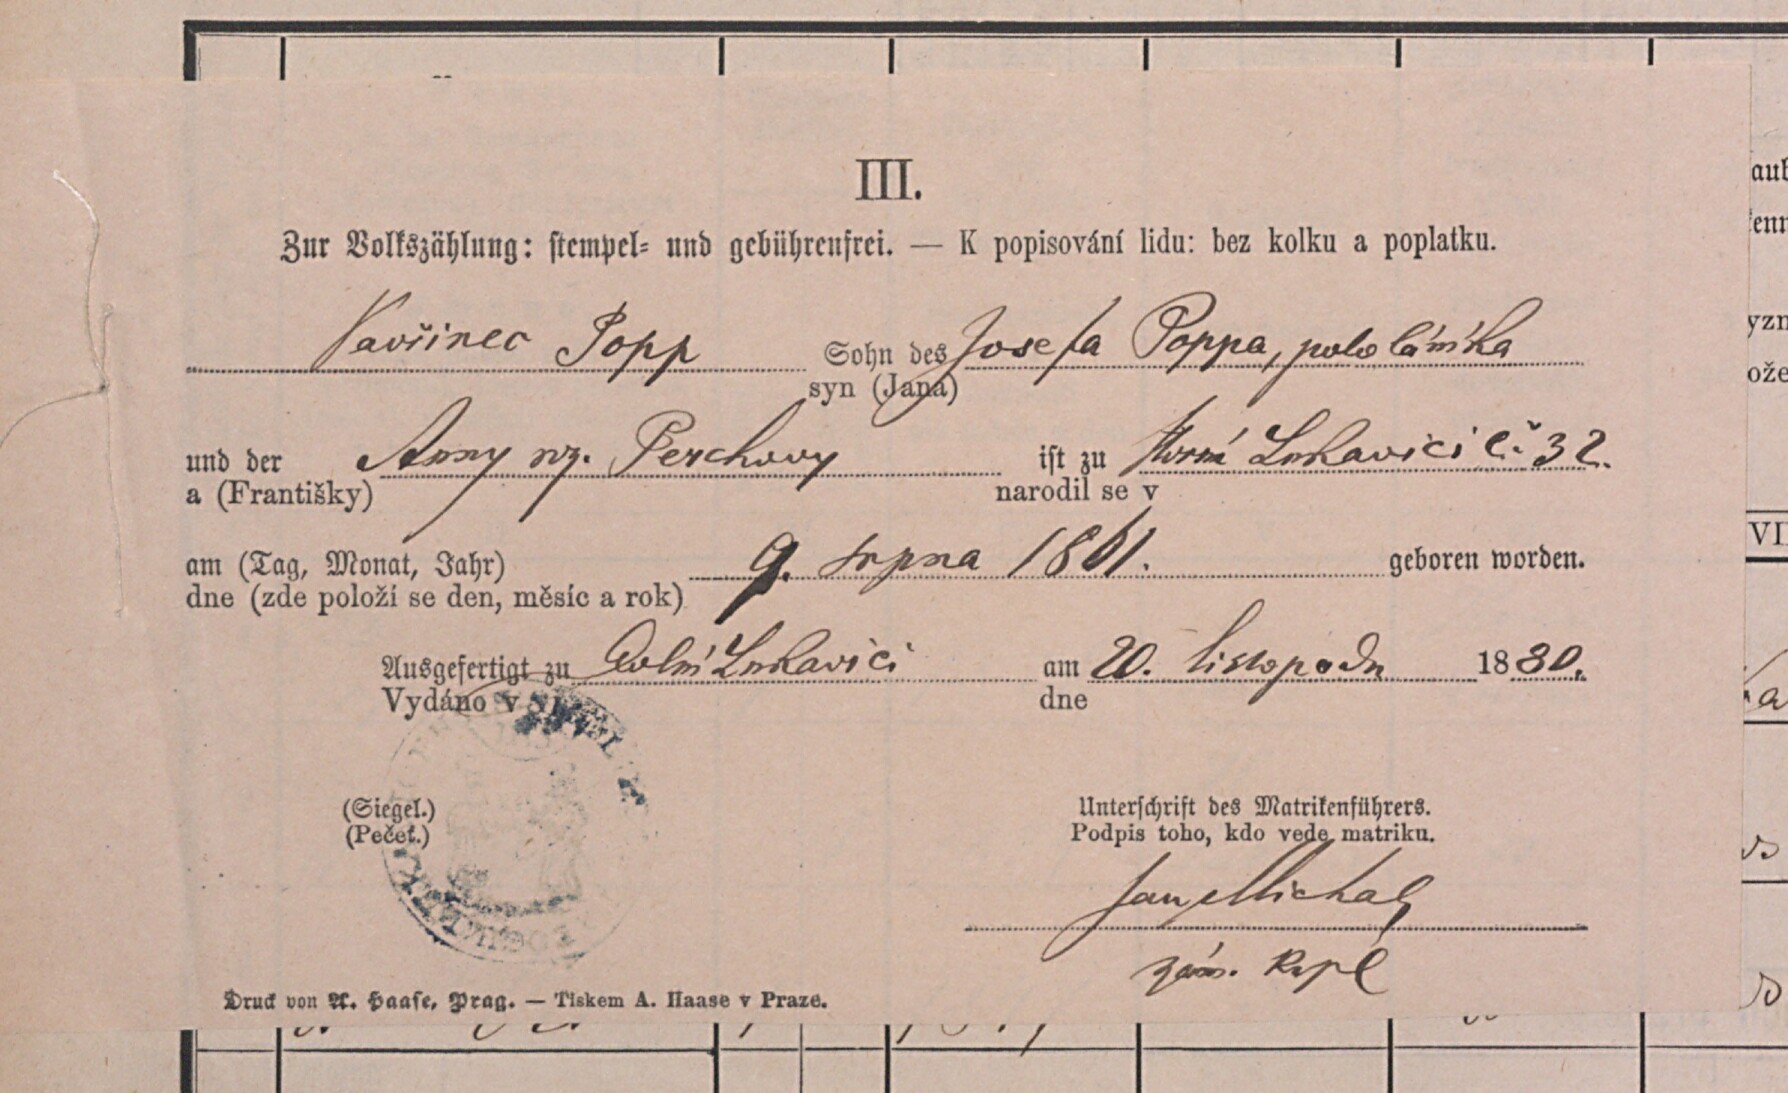 III.
Zur Volkszählung: stempel- und gebührenfrei. — K popisování lidu: bez kolku a poplatku.
Vavřinec Popp Sohn des Josefa Poppa, pololáníka
syn (Jana)
und der Anny roz. Perchovy ist zu Horní Lukavici č. 32.
a (Františky) narodil se v
am (Tag, Monat, Jahr) 9. srpna 1861. geboren worden.
dne (zde položí se den, měsíc a rok)
Ausgefertigt zu Dolní Lukavici am 20. listopadu 1880.
Vydáno v dne
(Siegel.) Unterschrift des Matrikenführers.
(Pečeť.) Podpis toho, kdo vede matriku.
Jan Michal
zám. kapl
Druck von A. Haase, Prag. — Tiskem A. Haase v Praze.